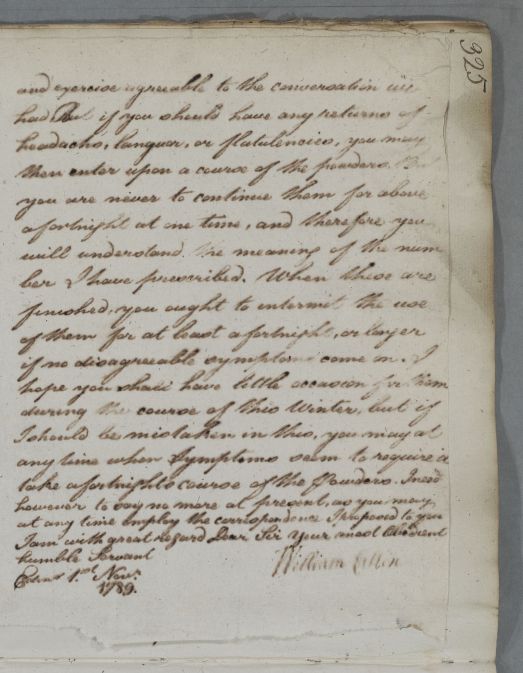 325
and exercise agreeable to the conversation we
had But if you should have any returns of
headachs, languor, or flatulencies, you may
then enter upon a course of the powders. But
you are never to continue them for above
a fortnight at one time, and therefore you
will understand the meaning of the num
ber I have prescribed. When these are
finished, you ought to intermit the use
of them for at least a fortnight, or longer
if no disagreeable symptoms come on. I
hope you shall have little occasion for them
during the course of this Winter, but if
I should be mistaken in this, you may at
any time when Symptoms seem to require it
take a fortnights course of the Powders. I need
however to say no more at present, as you may
at any time employ the correspondence I proposed to you
I am with great regard Dear Sir Your most Obedient
humble Servant
William Cullen
Edinr 1st Novr.
1789.